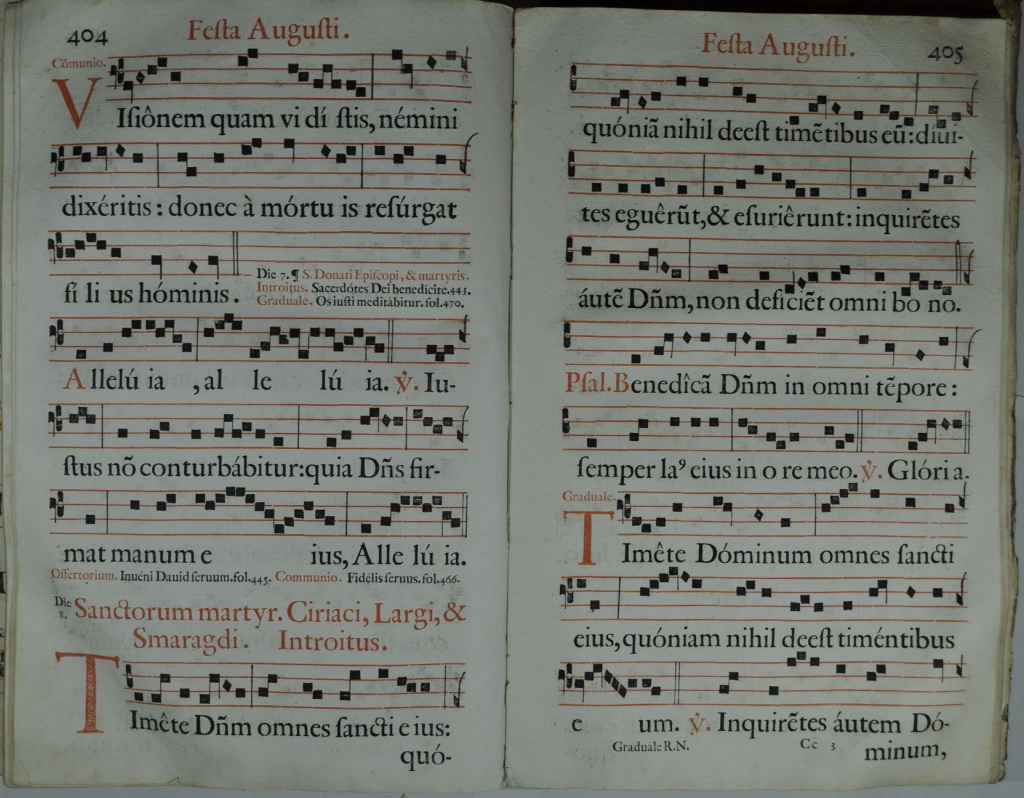 404
Festa Augusti.
Cōmunio.
VIsiônem quam vi dí stis, némini
dixéritis : donec à mórtu is resúrgat
fí li us hóminis.
Die 7. ¶ S. Donati Episcopi, & martyris.
Introitus. Sacerdótes Dei benedicite.443.
Graduale. Os iusti meditábitur.fol.470.
Allelú ia , al le lú ia. ℣. Iu-
stus nō conturbábitur:quia Dñs fir-
mat manum e ius, Alle lú ia.
Offertorium. Inuéni Dauid seruum.fol.445. Communio. Fidélis seruus.fol.466.
Die 8. Sanctorum martyr. Ciriaci, Largi, &
Smaragdi. Introitus.
TImête Dñm omnes sancti e ius:
quó-
Festa Augusti.
405
quóniā nihil deest timētibus eū: diui-
tes eguêrūt, & esuriêrunt: inquirētes
áutē Dñm, non deficiēt omni bo no.
Psal. Benedîcā Dñm in omni tēpore:
semper laꝰ eius in o re meo. ℣. Glóri a.
Graduale.
TImête Dóminum omnes sancti
eius, quóniam nihil deest timéntibus
e um. ℣. Inquirētes áutem Dó-
Graduale R.N. Cc 3 minum,